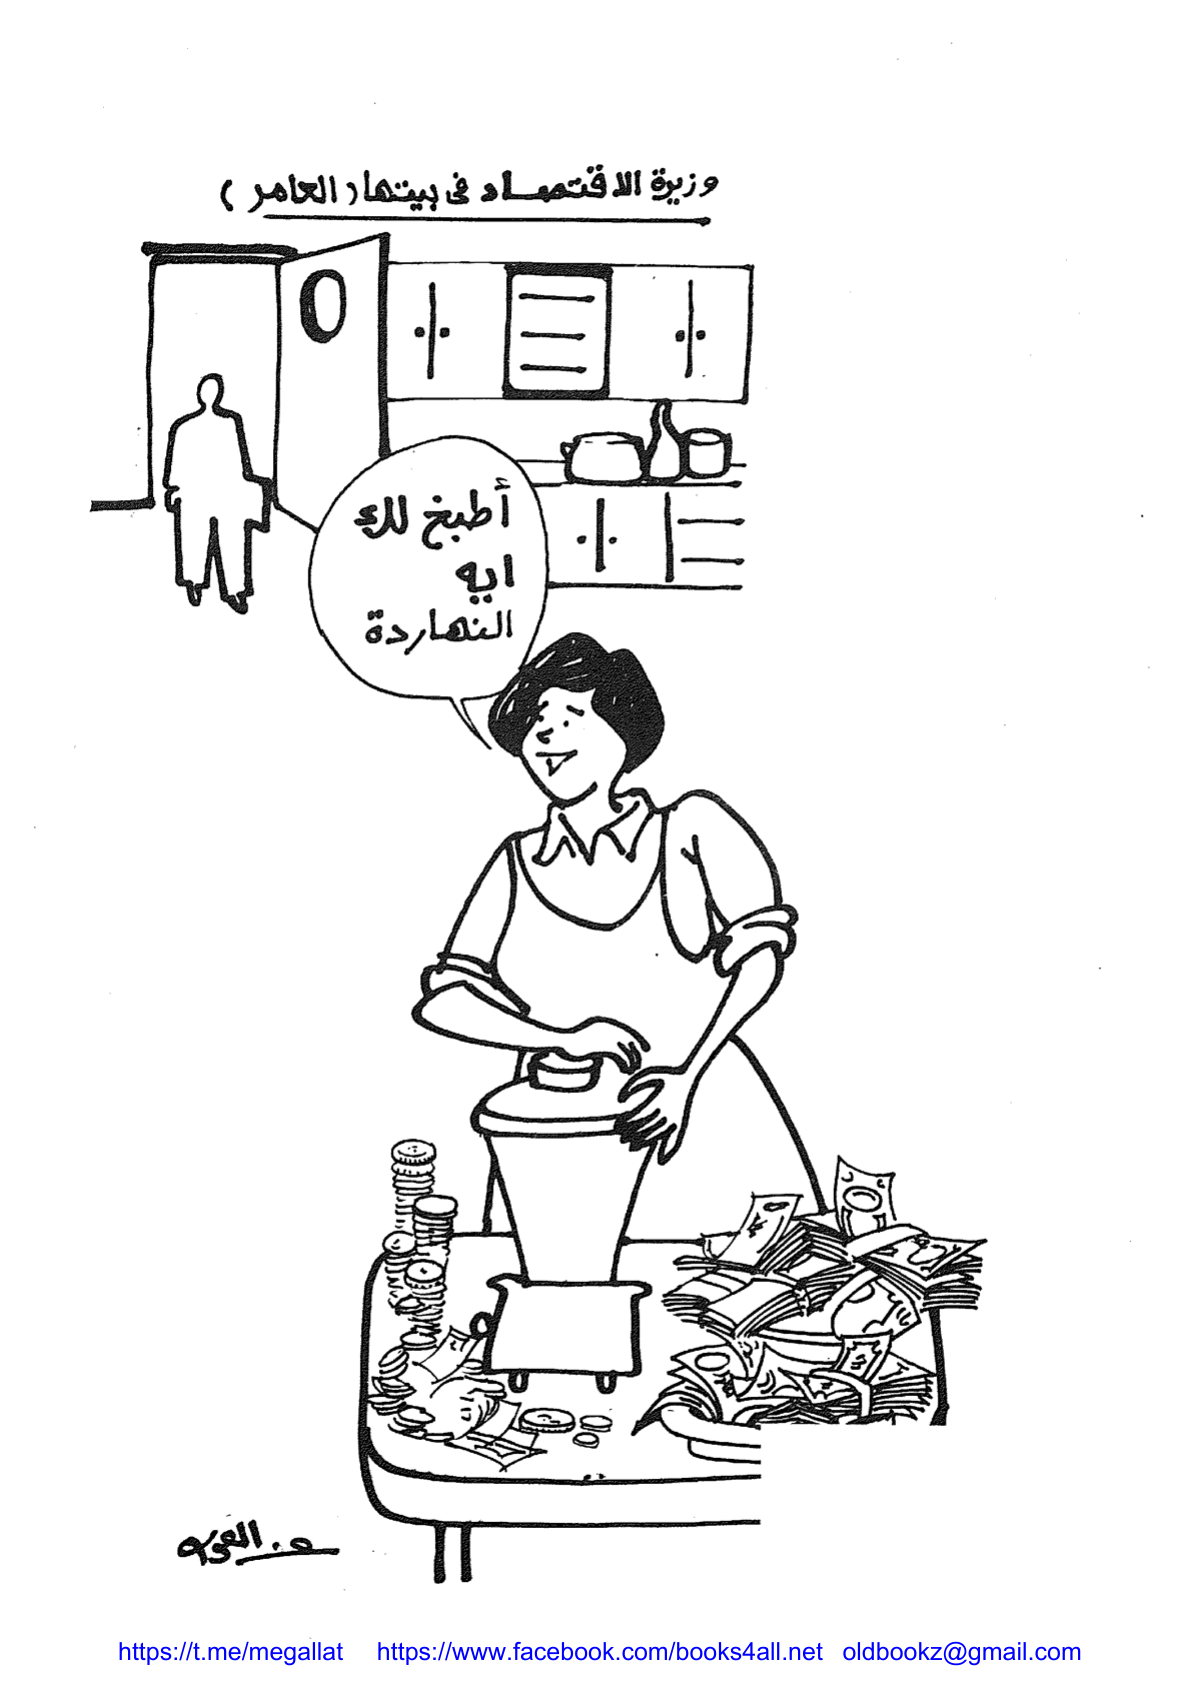 وزيرة الاقتصاد فى بيتها (العامر)
أطبخ لك
ايه
النهاردة
https://t.me/megallat https://www.facebook.com/books4all.net oldbookz@gmail.com